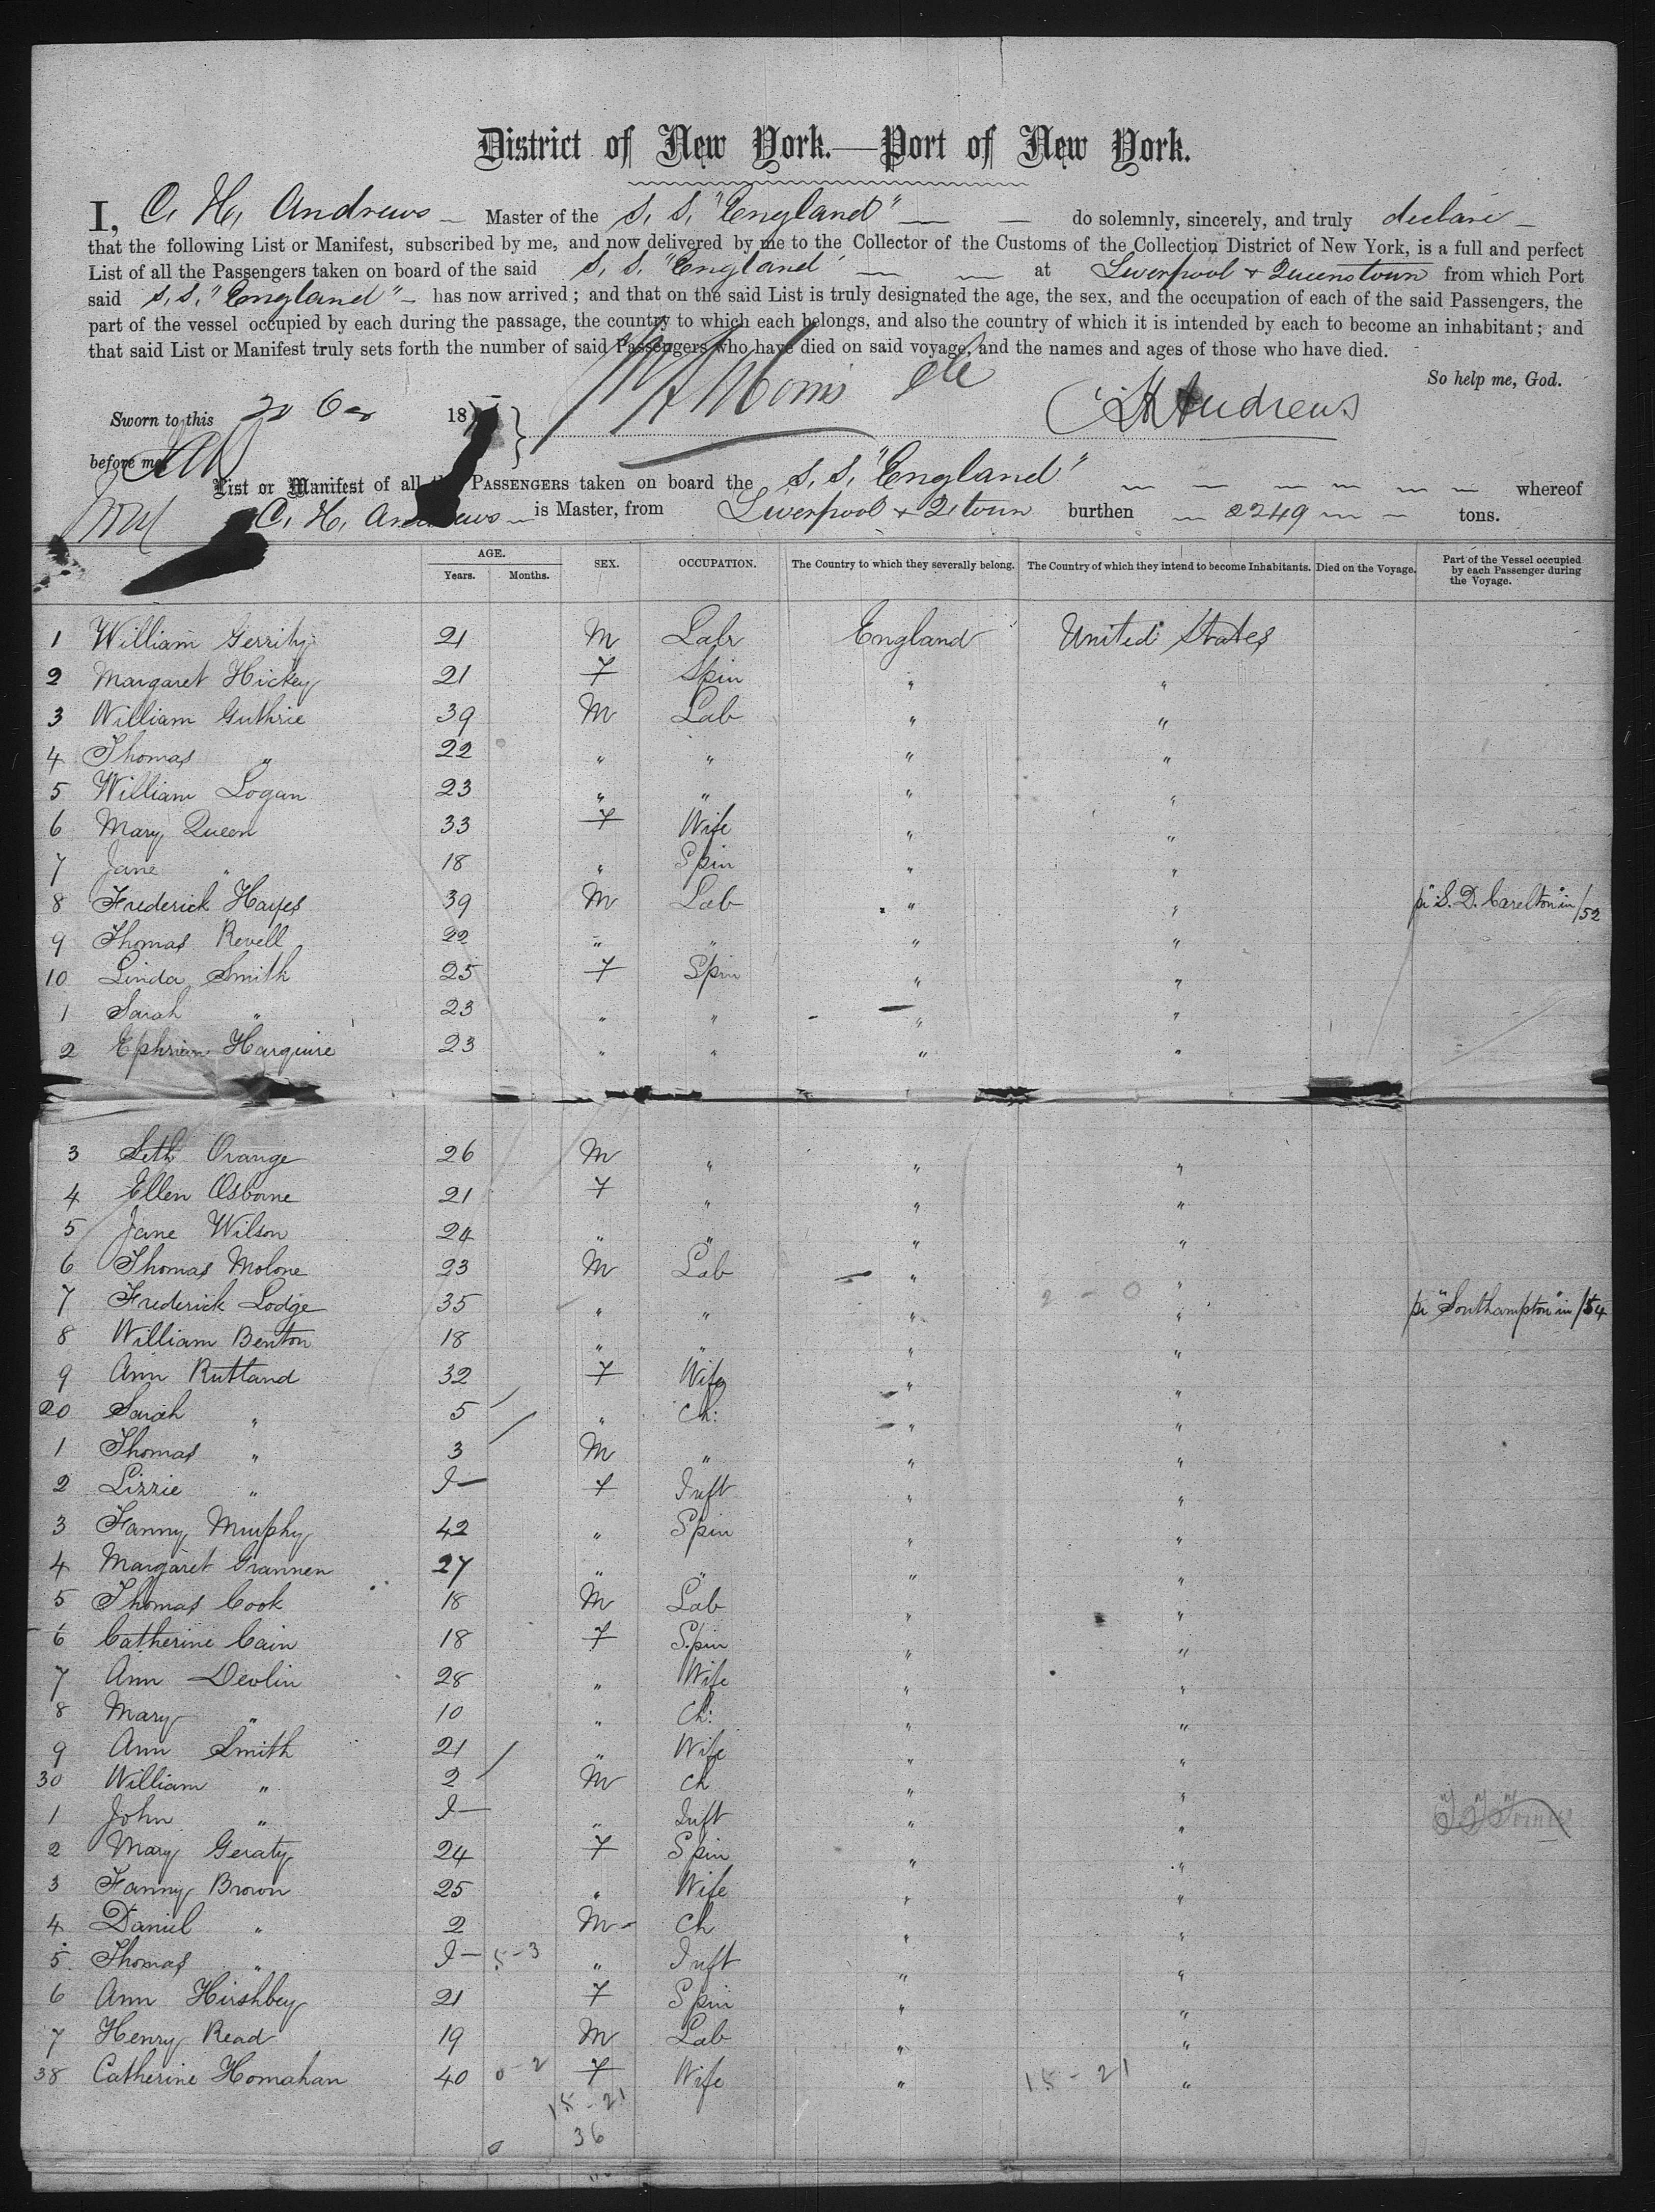 District of New York.—Port of New York.
I, C. H. Andrews — Master of the S. S. "England" — — do solemnly, sincerely, and truly declare —
that the following List or Manifest, subscribed by me, and now delivered by me to the Collector of the Customs of the Collection District of New York, is a full and perfect
List of all the Passengers taken on board of the said S. S. "England" — — at Liverpool & Queenstown from which Port
said S. S. "England" — has now arrived; and that on the said List is truly designated the age, the sex, and the occupation of each of the said Passengers, the
part of the vessel occupied by each during the passage, the country to which each belongs, and also the country of which it is intended by each to become an inhabitant; and
that said List or Manifest truly sets forth the number of said Passengers who have died on said voyage, and the names and ages of those who have died.
So help me, God.
Sworn to this 20 18
C H Andrews
before me
List or Manifest of all the PASSENGERS taken on board the S. S. "England" — — — — — — whereof
C. H. Andrews — is Master, from Liverpool & Q. town burthen — 2249 — — tons.
AGE. Years. Months. SEX. OCCUPATION. The Country to which they severally belong. The Country of which they intend to become Inhabitants. Died on the Voyage. Part of the Vessel occupied by each Passenger during the Voyage.
1 William Gerrity 21 M Labr England United States
2 Margaret Hickey 21 F Spin " "
3 William Guthrie 39 M Lab " "
4 Thomas " 22 " " " "
5 William Logan 23 " " " "
6 Mary Queen 33 F Wife " "
7 Jane " 18 " Spin " "
8 Frederick Hayes 39 M Lab " " pr "S. D. Carelton" in /52
9 Thomas Revell 22 " " " "
10 Linda Smith 25 F Spin " "
1 Sarah " 23 " " " "
2 Ephriam Harquire 23 " " " "
3 Seth Orange 26 M " " "
4 Ellen Osborne 21 F " " "
5 Jane Wilson 24 " " " "
6 Thomas Molone 23 M Lab " "
7 Frederick Lodge 35 " " " " pr "Southampton" in /54
8 William Benton 18 " " " "
9 Ann Rutland 32 F Wife " "
20 Sarah " 5 " Ch: " "
1 Thomas " 3 M " " "
2 Lizzie " I— F Inft " "
3 Fanny Murphy 42 " Spin " "
4 Margaret Grannen 27 " " " "
5 Thomas Cook 18 M Lab " "
6 Catherine Cain 18 F Spin " "
7 Ann Devlin 28 " Wife " "
8 Mary " 10 " Ch: " "
9 Ann Smith 21 " Wife " "
30 William " 2 M Ch " "
1 John " I— " Inft " "
2 Mary Geraty 24 F Spin " "
3 Fanny Brown 25 " Wife " "
4 Daniel " 2 M Ch " "
5 Thomas " I— 5-3 " Inft " "
6 Ann Hirshbey 21 F Spin " "
7 Henry Read 19 M Lab " "
38 Catherine Homahan 40 0-2 F Wife " 15-21 "
15-21
0 36